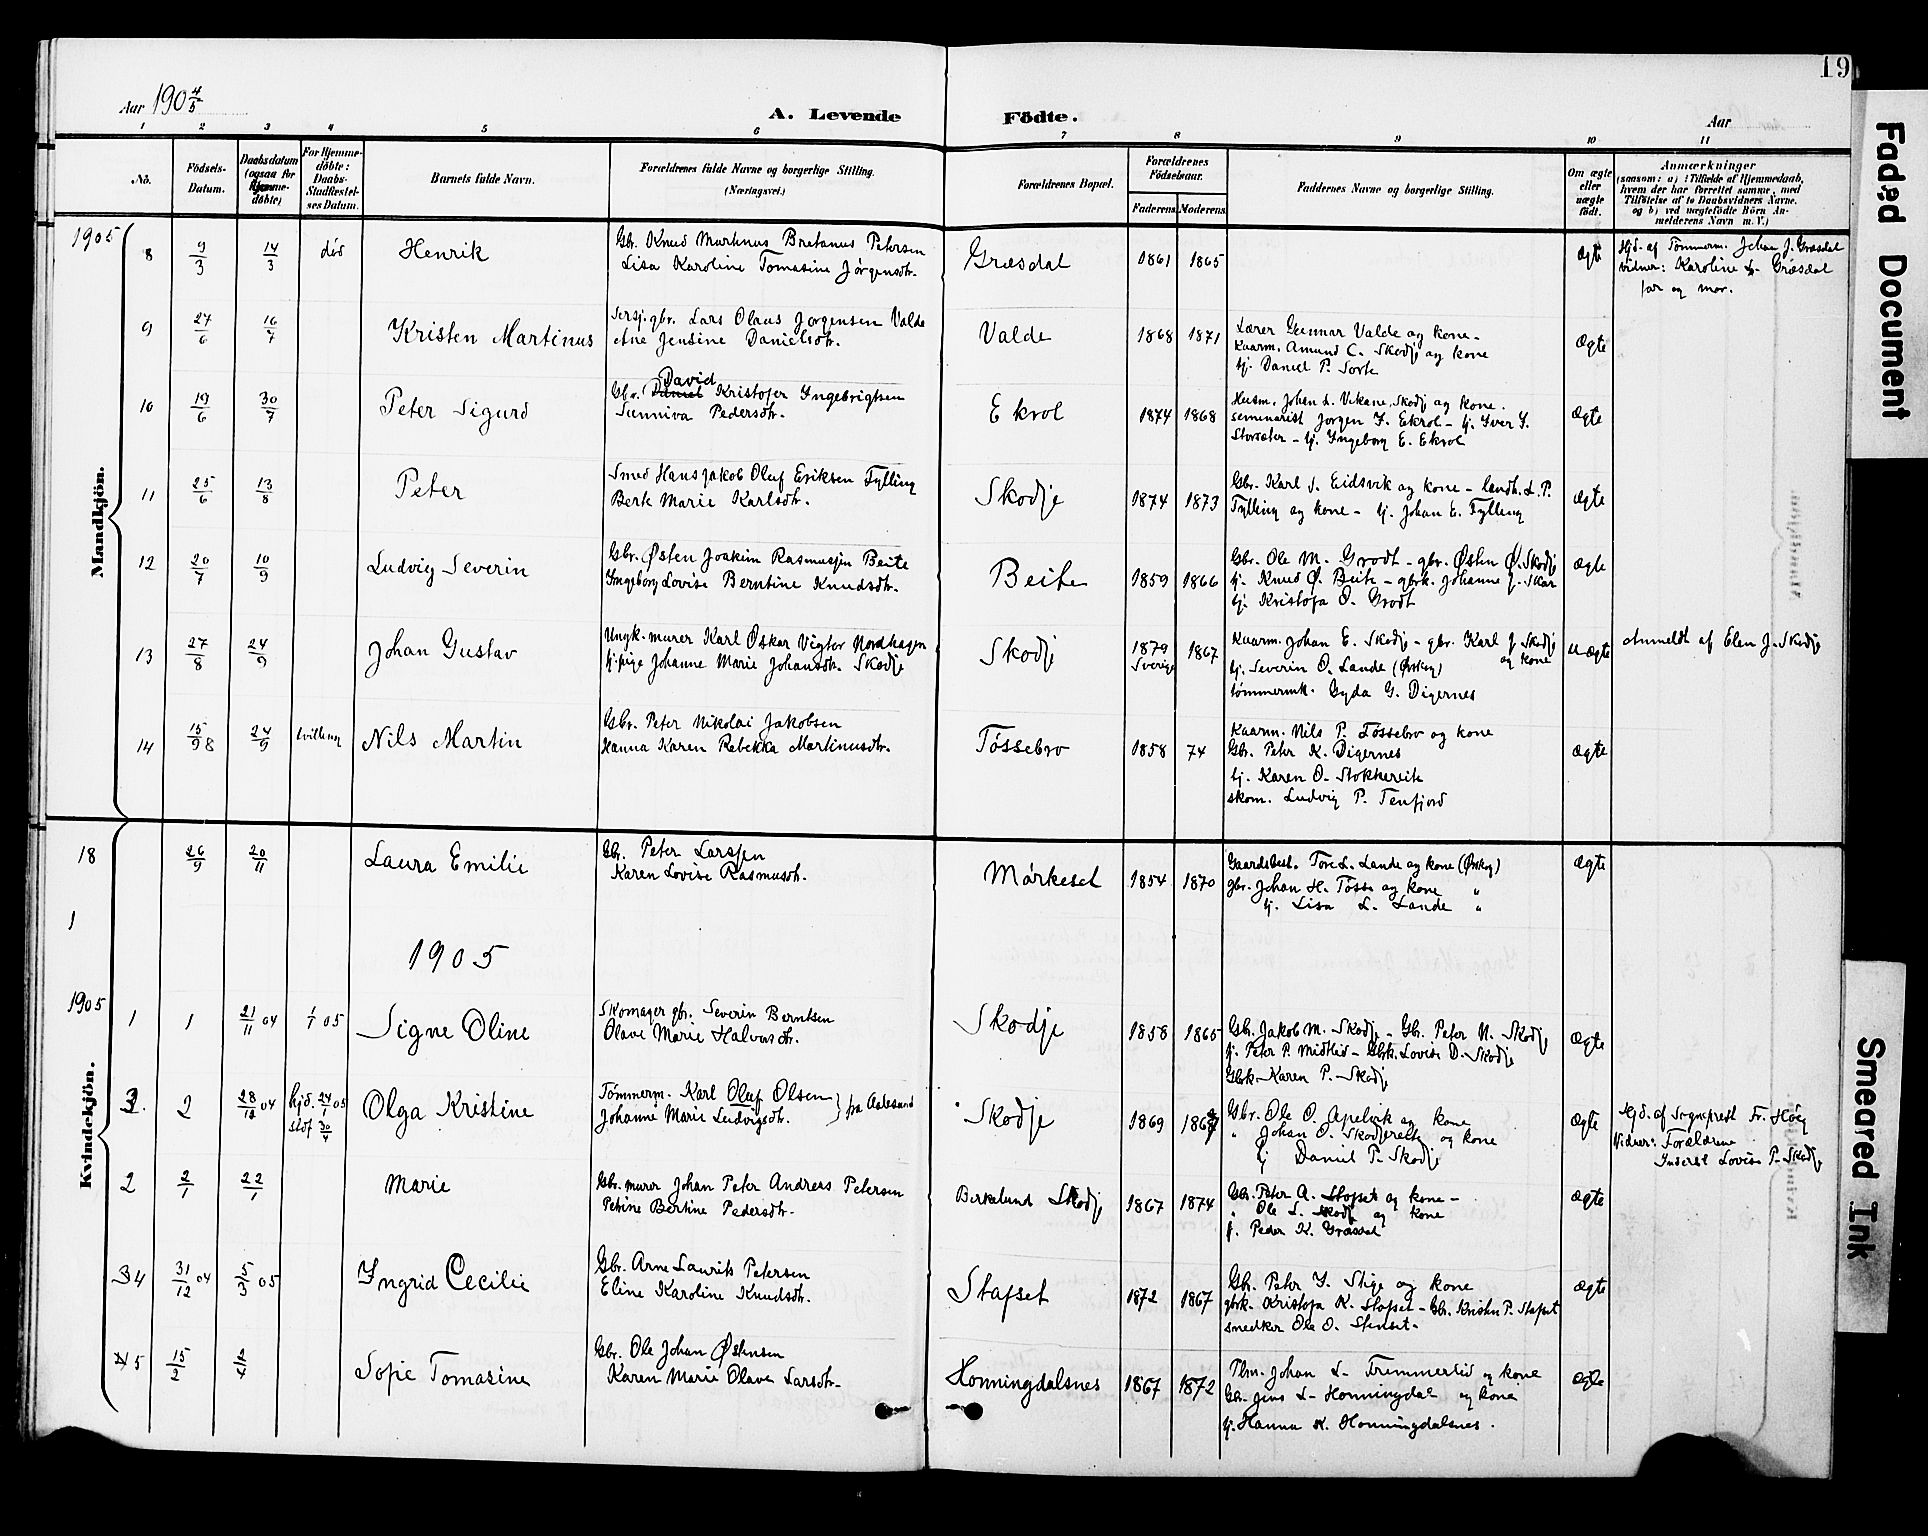 19
Aar 190 4/5
A. Levende Födte.
Aar
1 2 3 4 5 6 7 8 9 10 11
No.
Födsels-Datum.
Daabsdatum (ogsaa for Hjemme-döbte)
For Hjemme-döbte: Daabs-Stadfæstel-ses Datum.
Barnets fulde Navn.
Forældrenes fulde Navne og borgerlige Stilling. (Næringsvei.)
Forældrenes Bopæl.
Forældrenes Födselsaar.
Faderens Moderens
Faddernes Navne og borgerlige Stilling.
Om ægte eller uægte födt.
Anmærkninger
(saasom: a) i Tilfælde af Hjemmedaab,
hvem der har forrettet samme, med
Tilföielse af to Daabsvidners Navne,
og b) ved uægtefödte Börn An-
melderens Navn m. V.)
Mandkjön.
1905
8 9/3 14/3 död Henrik
Gbr. Knud Martinus Bretanus Petersen
Lisa Karoline Tomasine Jörgensdtr.
Græsdal 1861 1865
ægte
Hjd. af Tömmerm. Johan J. Græsdal
vidner: Karoline L. Græsdal
far og mor.
9 27/6 16/7 Kristen Martinus
Sersj. gbr. Lars Olaus Jorgensen Valde
Ane Jensine Danielsdtr.
Valde 1868 1871
Lærer Gunnar Valde og kone-
Kaarm. Amund C. Skodje og kone
tj. Daniel P. Sorte
ægte
10 19/6 30/7 Peter Sigurd
David
Gbr. Daniel Kristofer Yngebrigtsen
Sunniva Pedersdtr.
Ekrol 1874 1868
Husm. Johan L. Vikane, Skodje og kone.
seminarist Jorgen I. Ekrol - tj. Iver I.
Storsæter - tj. Yngeborg E. Ekrol
ægte
11 25/6 13/8 Peter
Smed Hans Jakob Oluf Eriksen Fylling
Berte Marie Karlsdtr.
Skodje 1874 1873
Gbr. Karl S. Eidsvik og kone - landh. L. P.
Fylling og kone - tj. Johan E. Fylling
ægte
12 20/7 10/9 Ludvig Severin
Gbr. Østen Joakim Rasmussen Beite
Yngeborg Lovise Berntine Knudsdtr.
Beite 1859 1866
Gbr. Ole M. Grodt - gbr. Østen Ø. Skodje
tj. Knud Ø. Beite - gbrk. Johanne J. Skar
tj. Kristofa O. Grodt
ægte
13 27/8 24/9 Johan Gustav
Ungk. murer Karl Oskar Vigtor Nordhagen
tj. pige Johanne Marie Johansdtr. Skodje
Skodje 1879 Sverige 1867
Kaarm. Johan E. Skodje - gbr. Karl J. Skodje
tj. Severin O. Lande (Ørskog) og kone
tömmermk. Gyda G. Digernes
uægte
Anmeldt af Elen J. Skodje
14 15/9 8 24/9 tvilling Nils Martin
Gbr. Peter Nikolai Jakobsen
Hanna Karen Rebekka Martinusdtr.
Tössebro 1858 74
Kaarm. Nils P. Tössebro og kone
Gbr. Peter K. Digernes
tj. Karen O. Stokkereite
skom. Ludvig P. Tenfjord
ægte
Kvindekjön.
18 26/9 20/11 Laura Emilie
Gbr. Peter Larssen
Karen Lovise Rasmusdtr.
Mörkeset 1854 1870
Gaardsbest. Tore L. Lande og kone (Ørskog)
gbr. Johan H. Tösse og kone "
tj. Lisa L. Lande "
ægte
1
1905
1905
1 1 21/11 04 1/1 05 Signe Oline
Skomager gbr. Severin Berntsen
Olave Marie Halvorsdtr.
Skodje 1858 1865
Gbr. Jakob M. Skodje - Gbr. Peter N. Skodje
tj. Peter P. Midtlid - Gbrk. Lovise D. Skodje
Gbrk. Karen P. Skodje
ægte
2. 2 28/12 04 hjd. 24/1 05 stdf 30/4 Olga Kristine
Tömmerm. Karl Oluf Olsen
Johanne Marie Ludvigsdtr. } fra Aalesund
Skodje 1869 1867
Gbr. Ole O. Apelvik og kone
" Johan O. Skodjereite og kone
tj Daniel P. Skodje
ægte
Hjd. af Sogneprest Fr. Höeg
Vidner: Forældrene
Inderst Lovise P. Skodje
2 2/1 22/1 Marie
Gbr. murer Johan Peter Andreas Petersen
Petrine Bertine Pedersdtr.
Berkelund Skodje 1867 1874
Gbr. Peter A. Stapset og kone -
" Ole L. Skodje og kone
f. Peder K. Græsdal
ægte
3 4 31/12 04 5/3 05 Yngrid Cecilie
Gbr. Arne Laurits Petersen
Eline Karoline Knudsdtr.
Stapset 1872 1867
Gbr. Peter I. Stige og kone
gbrk. Kristofa K. Stapset - Gbr. Kristen P. Stapset
snedker Ole O. Stenset.
ægte
4 5 15/2 2/4 Sofie Tomasine
Gbr. Ole Johan Østensen
Karen Marie Olave Larsdtr.
Honningdalsnes 1867 1872
Tlm. Johan L. Fremmerlid og kone
Gbr. Jens L. Honningdal og kone
tj. Hanna K. Honningdalsnes.
ægte
Faded Document
Smeared Ink